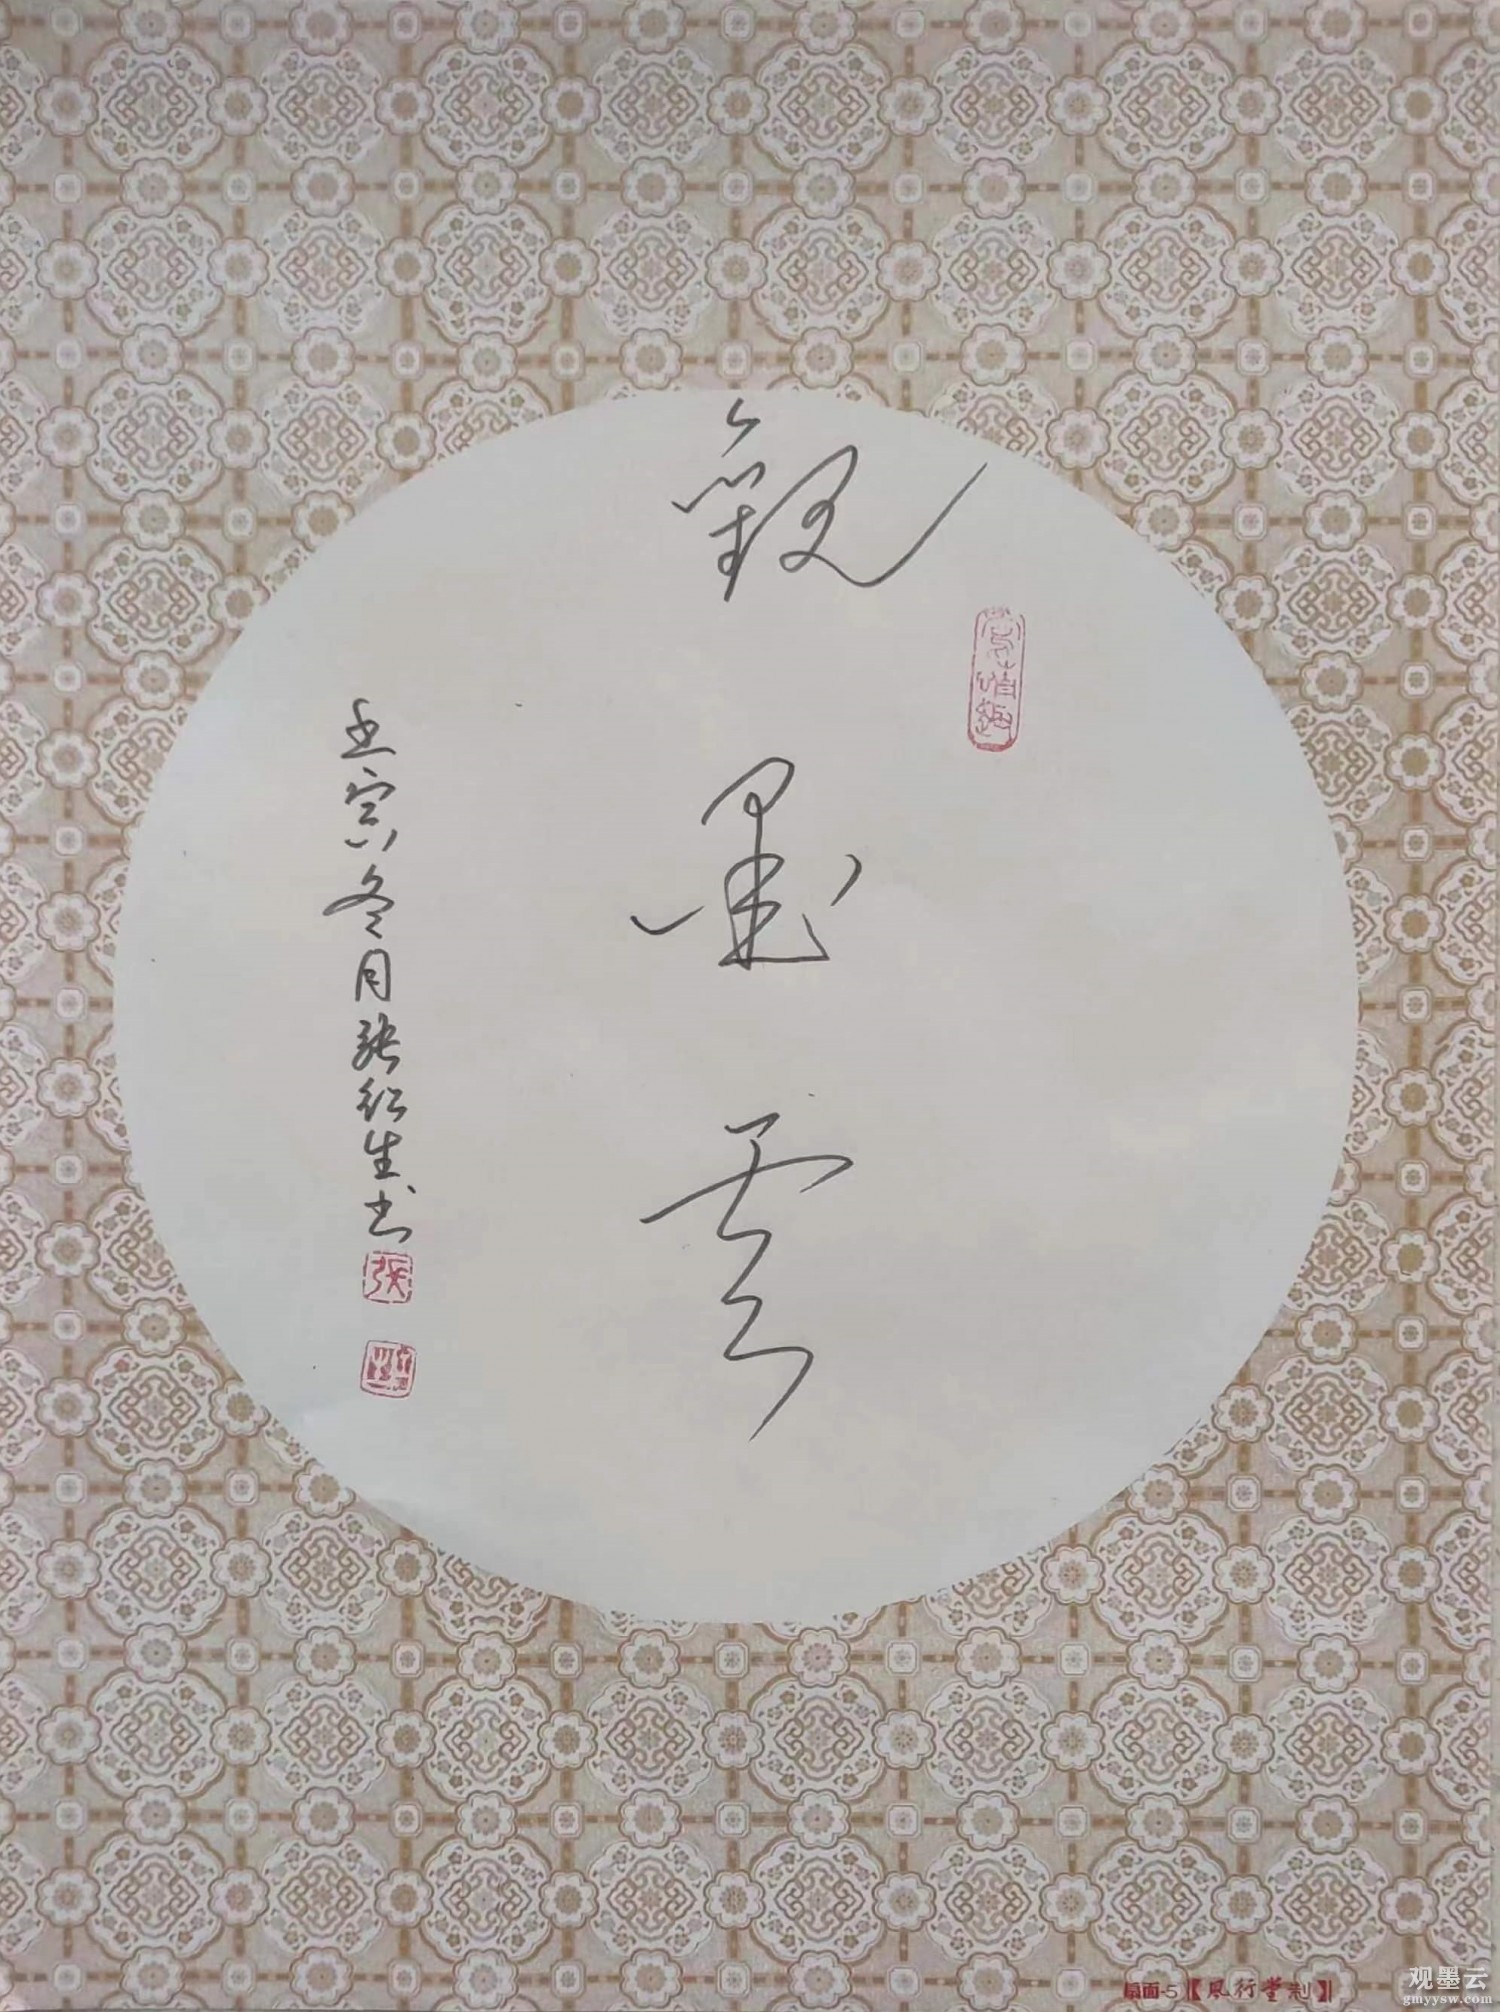 觀墨云
壬寅冬月張紅生书
張
扇面-5【風行堂制】
观墨云
gmyysw.com